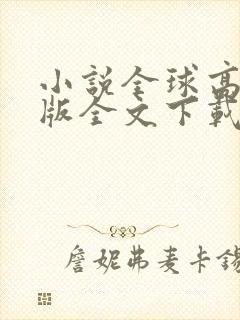 小說全球高
版全文下載
詹妮弗麦卡錫